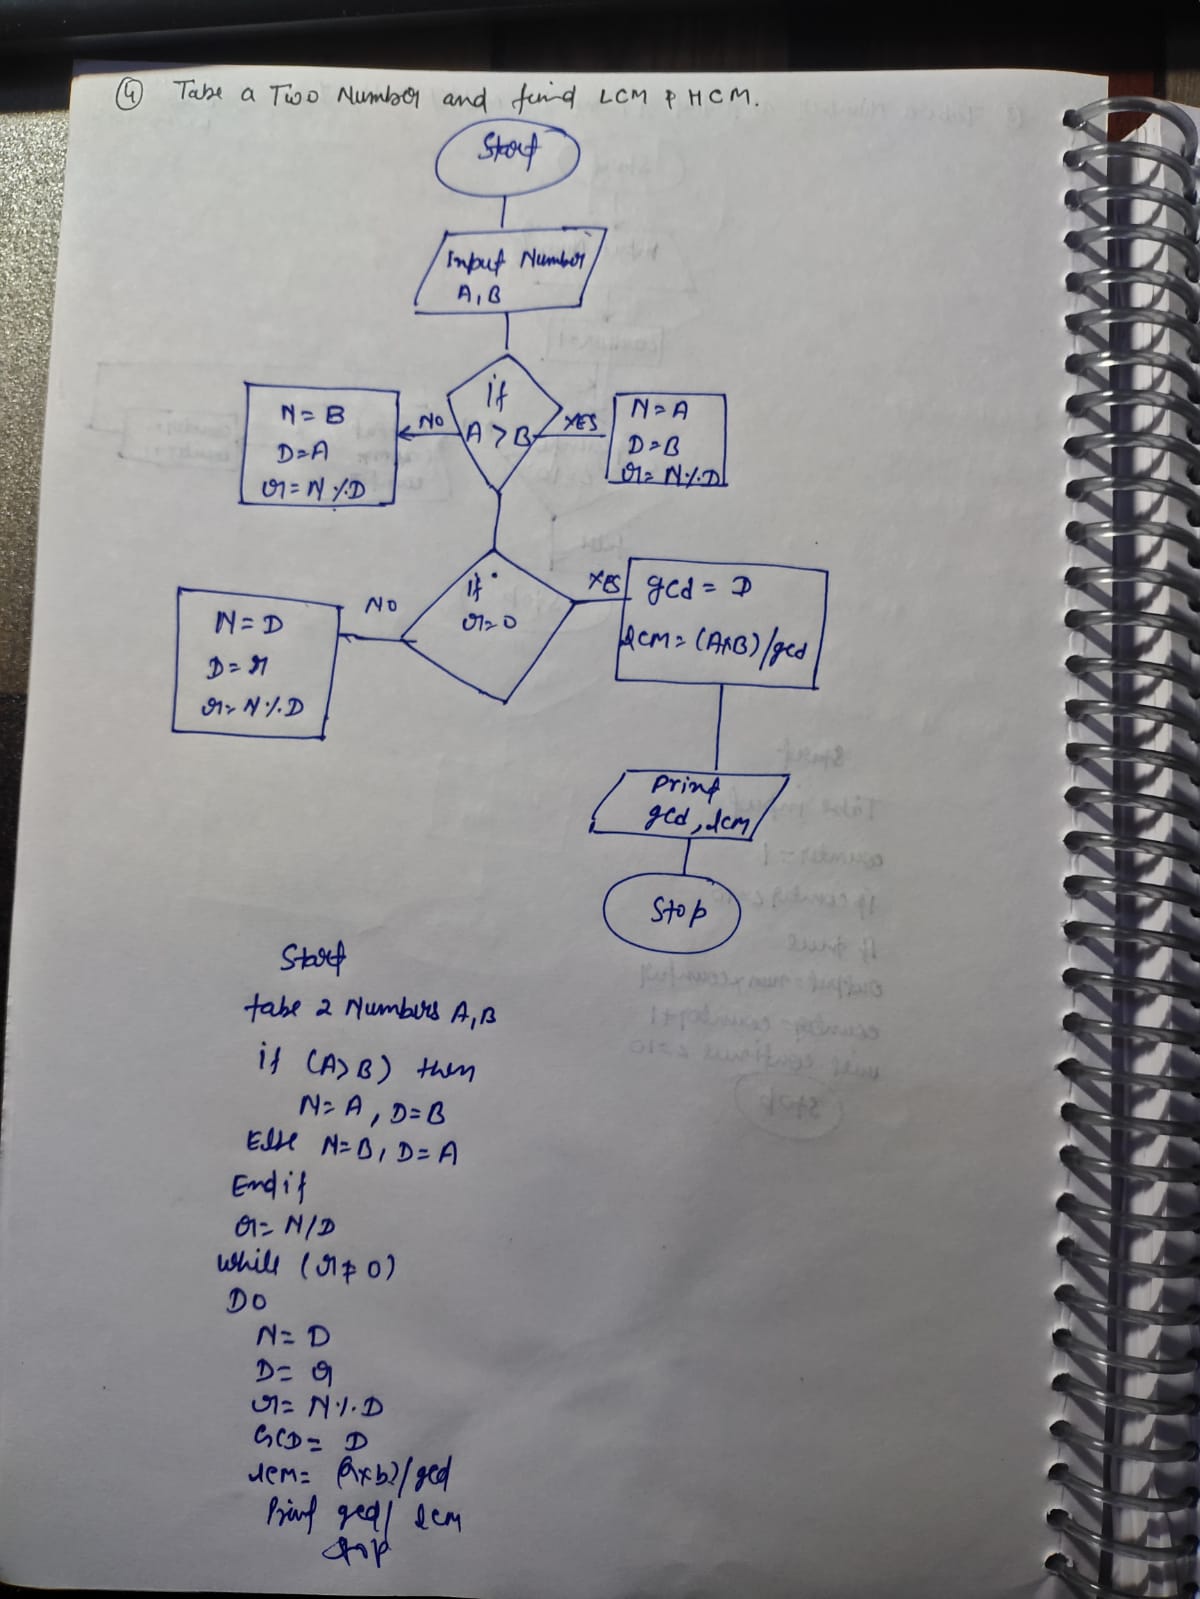 ④ Take a Two Number and find LCM & HCM.
Start
Input Number
A, B
if
A > B
NO
YES
N = B
D = A
r = N % D
N = A
D = B
r = N % D
if
r = 0
NO
YES
N = D
D = r
r = N % D
gcd = D
lcm = (A*B)/gcd
Print
gcd, lcm
Stop
Start
take 2 Numbers A, B
if (A > B) then
N = A, D = B
Else N = B, D = A
End if
r = N/D
while (r ≠ 0)
Do
N = D
D = r
r = N % D
GCD = D
lcm = (a*b)/gcd
Print gcd/ lcm
stop